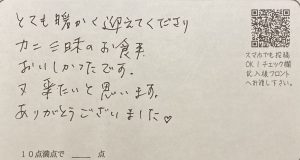 とても暖かく迎えてくださり
カニ三昧のお食事
おいしかったです。
又来たいと思います。
ありがとうございました♡
スマホでも投稿
OK!チェック欄
記入後フロント
へお渡し下さい。
10点満点で ___ 点